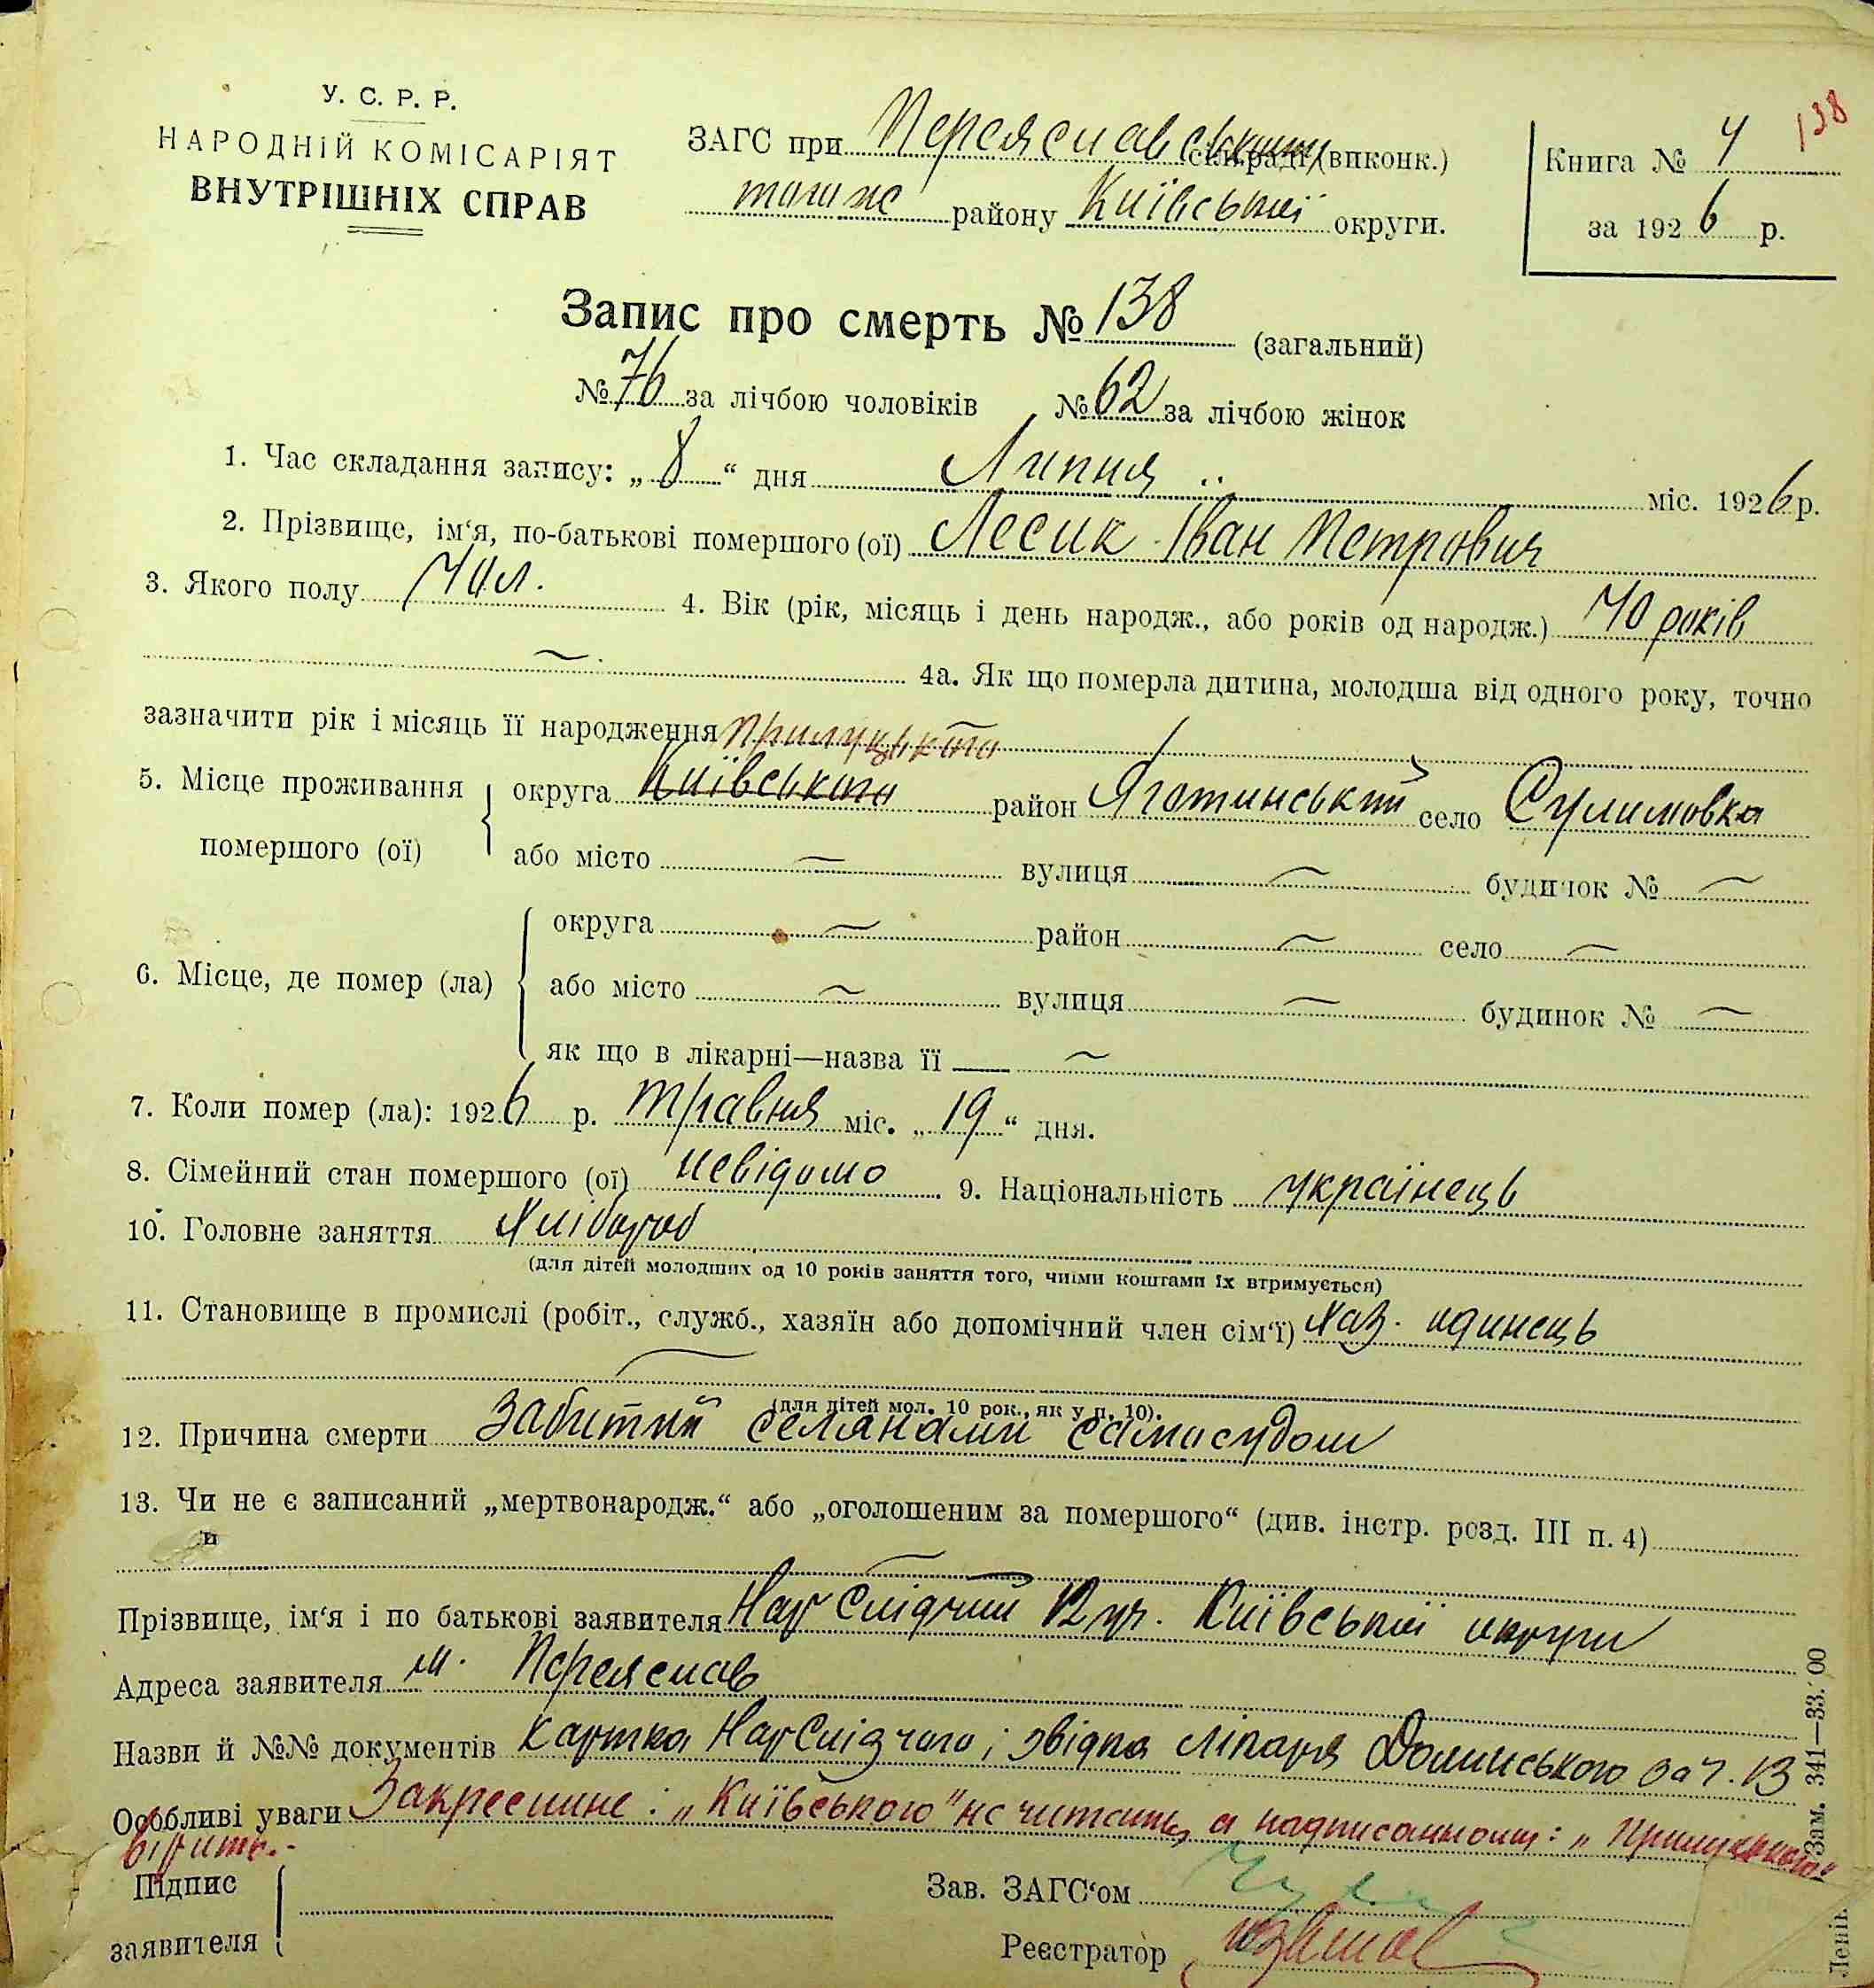 138
У. С. Р. Р.
НАРОДНІЙ КОМІСАРІЯТ
ВНУТРІШНІХ СПРАВ
ЗАГС при Переяславським (виконк.)
того ж району Київської округи.
Книга № 4
за 1926 р.
Запис про смерть № 138 (загальний)
№ 76 за лічбою чоловіків № 62 за лічбою жінок
1. Час складання запису: „ 8 “ дня Липня міс. 1926 р.
2. Прізвище, ім‘я, по-батькові помершого (ої) Лесик Іван Петрович
3. Якого полу Чол. 4. Вік (рік, місяць і день народж., або років од народж.) 40 років
4а. Як що померла дитина, молодша від одного року, точно
зазначити рік і місяць її народження
Прилуцького
5. Місце проживання помершого (ої) округа Київського район Яготинський село Сулимовка
або місто — вулиця — будинок № —
6. Місце, де помер (ла) округа — район — село —
або місто — вулиця — будинок № —
як що в лікарні—назва її —
7. Коли помер (ла): 1926 р. травня міс. „ 19 “ дня.
8. Сімейний стан помершого (ої) невідомо 9. Національність українець
10. Головне заняття Хлібороб
(для дітей молодших од 10 років заняття того, чиїми коштами їх втримується)
11. Становище в промислі (робіт., служб., хазяїн або допомічний член сім‘ї) Хаз. одинець
(для дітей мол. 10 рок., як у п. 10).
12. Причина смерти Забитий селянами самосудом
13. Чи не є записаний „мертвонародж.“ або „оголошеним за помершого“ (див. інстр. розд. III п. 4)
Прізвище, ім‘я і по батькові заявителя НарСлідчий 12 уч. Київської округи
Адреса заявителя м. Переяслав
Назви й №№ документів картка НарСлідчого; звідка лікаря Долинського за ч. 13
Особливі уваги Закреслине: „Київського“ не читать, а надписанному: „Прилуцького“
вірить.
Підпис заявителя
Зав. ЗАГС‘ом
Реєстратор
Зам. 341—33.